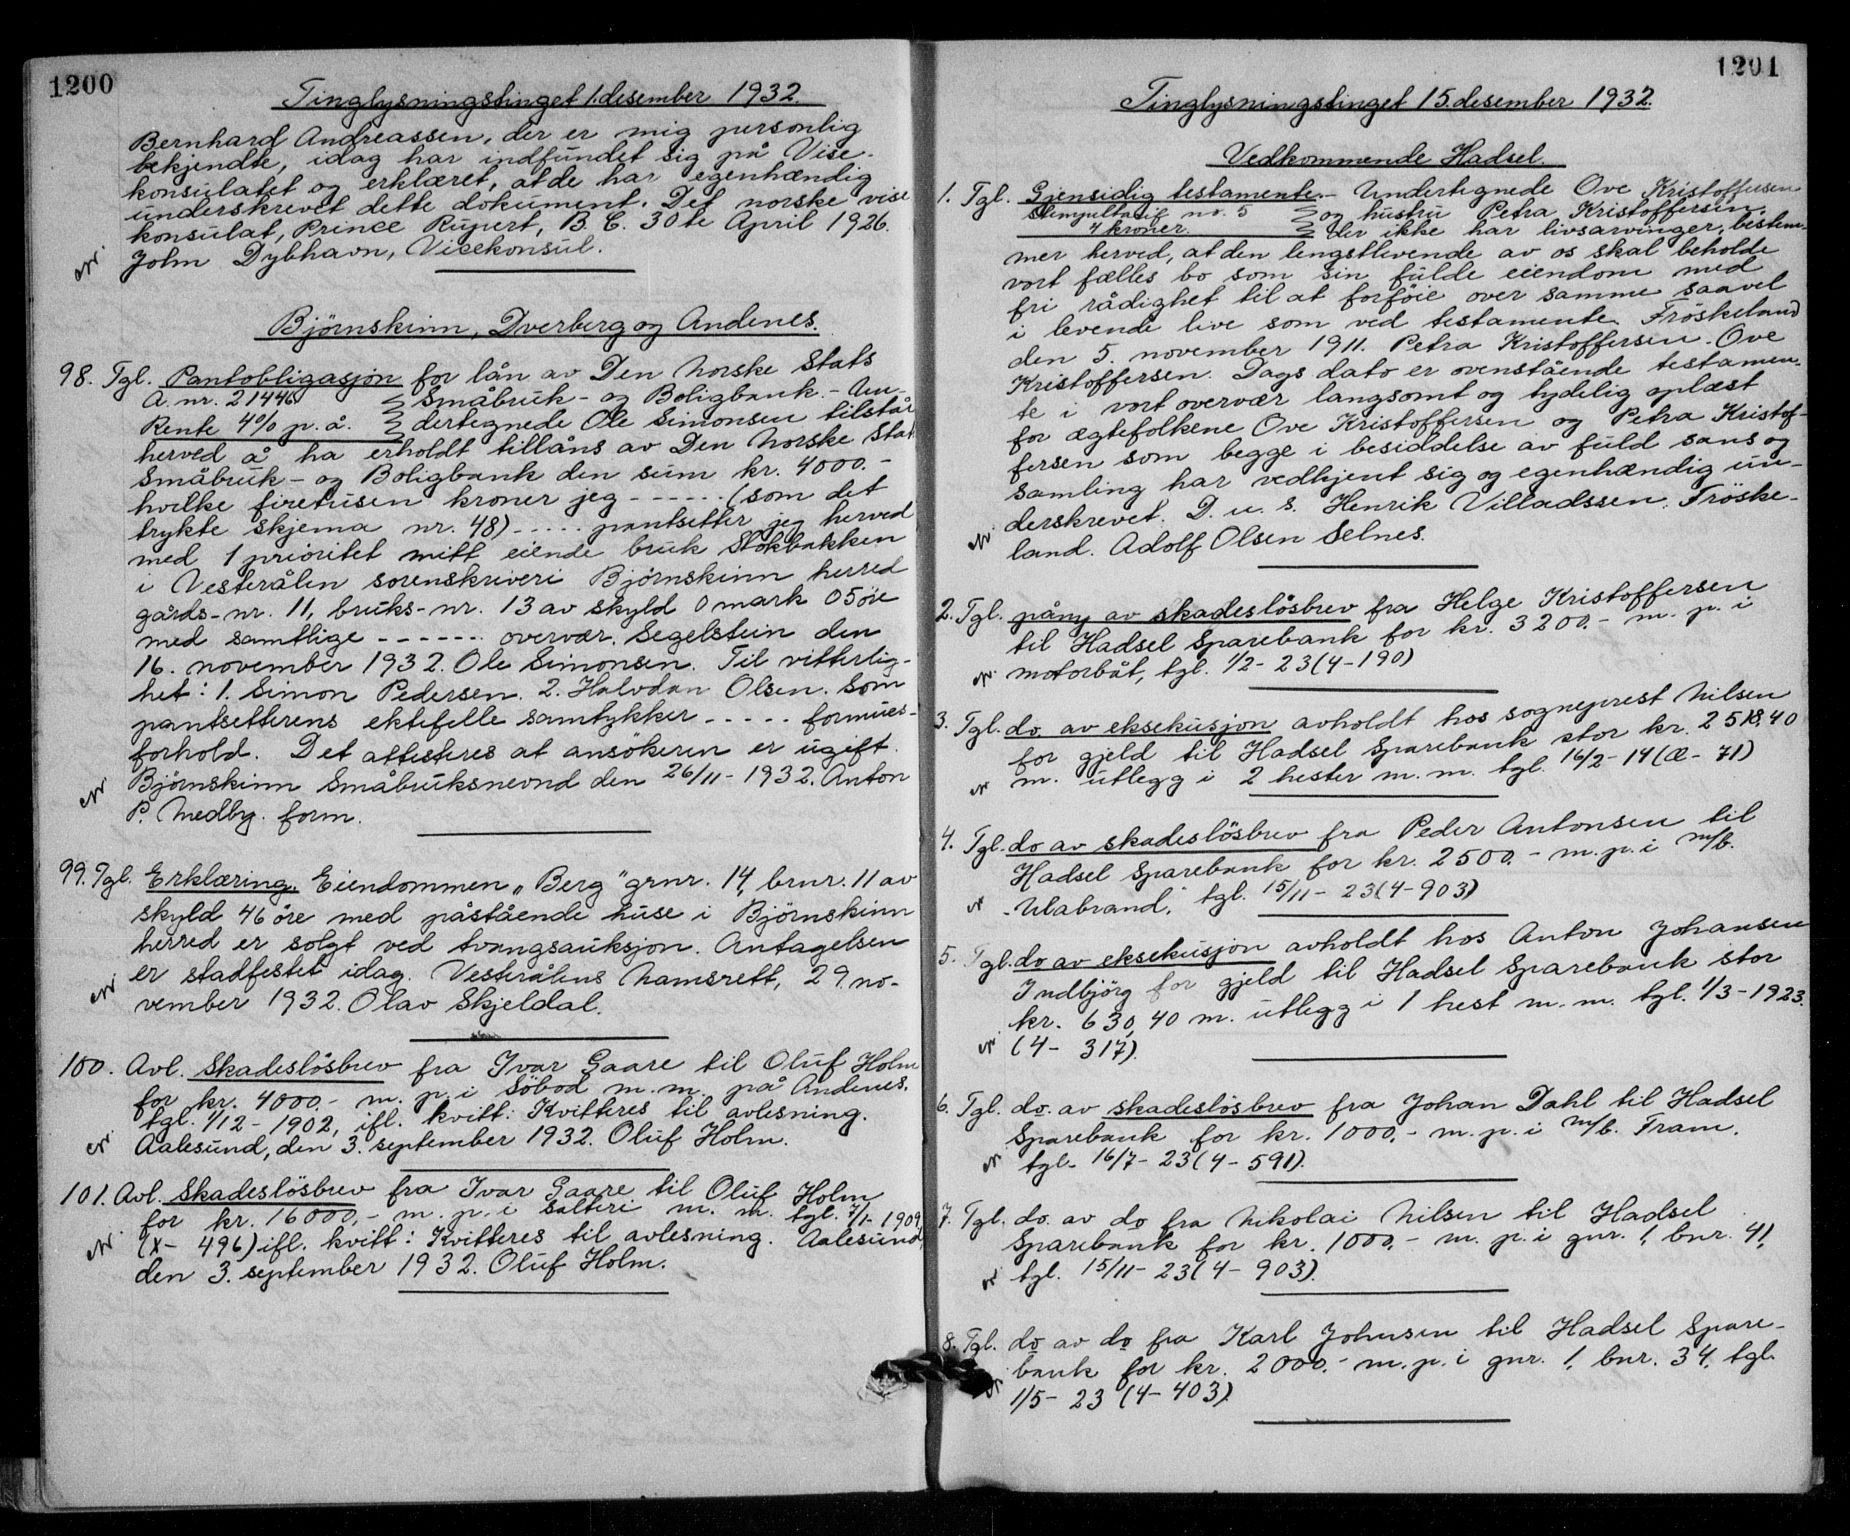 1200
Tinglysningstinget 1. desember 1932.
Bernhard Andreassen, der er mig personlig
bekjendte, idag har indfundet sig på Vise-
konsulatet og erklæret, at de har egenhændig
underskrevet dette dokument. Det norske vise
konsulat, Prince Rupert, B. C. 30te April 1926.
John Dybhavn, Visekonsul.
Björnskinn, Dverberg og Andenes.
98. Tgl. Pantobligasjon for lån av Den Norske Stats
A. nr. 21446 Småbruk- og Boligbank. - Un-
Rente 4% p. å. dertegnede Ole Simonsen tilstår
herved å ha erholdt tillåns av Den Norske Stats
Småbruk- og Boligbank den sum kr. 4000.-
hvilke firetusen kroner jeg - - - - - - (som det
trykte skjema nr. 48) - - - - - pantsetter jeg herved
med 1 prioritet mitt eiende bruk Stokbakken
i Vesterålen sorenskriveri Björnskinn herred
gårds-nr. 11, bruks-nr. 13 av skyld 0 mark 05 öre
med samtlige - - - - - - overvær. Segelstein den
16. november 1932. Ole Simonsen. Til vitterlig-
het: 1. Simon Pedersen. 2. Halvdan Olsen. Som
pantsetterens ektefelle samtykker - - - - - formues-
forhold. Det attesteres at ansökeren er ugift.
Björnskinn Småbruksnevnd den 26/11 - 1932. Anton
P. Medby. form.
99. Tgl. Erklæring. Eiendommen „Berg" grnr. 14, brnr. 11 av
skyld 46 öre med påstående huse i Björnskinn
herred er solgt ved tvangsauksjon. Antagelsen
er stadfestet idag. Vesterålens Namsrett, 29. no-
vember 1932. Olav Skjeldal.
100. Avl. Skadeslösbrev fra Ivar Gaare til Oluf Holm
for kr. 4000.- m. p. i Söbod m. m. på Andenes.
tgl. 1/12 - 1902, ifl. kvitt: Kvitteres til avlesning.
Aalesund, den 3. september 1932. Oluf Holm.
101. Avl. Skadeslösbrev fra Ivar Gaare til Oluf Holm
for kr. 16000,- m. p. i salteri m. m. tgl. 7/1- 1909
(X- 496) ifl. kvitt: Kvitteres til avlesning. Aalesund,
den 3. september 1932. Oluf Holm.
1201
Tinglysningstinget 15. desember 1932.
Vedkommende Hadsel.
1. Tgl. Gjensidig testamente. - Undertegnede Ove Kristoffersen
Stempeltarif no. 5 og hustru Petra Kristoffersen,
4 kroner. der ikke har livsarvinger, bestem-
mer herved, at den lengstlevende av os skal beholde
vort fælles bo som sin fulde eiendom med
fri rådighet til at forföie over samme saavel
i levende live som ved testamente. Fröskeland
den 5. november 1911. Petra Kristoffersen. Ove
Kristoffersen. Dags dato er ovenstående testamen-
te i vort overvær langsomt og tydelig oplæst
for ægtefolkene Ove Kristoffersen og Petra Kristof-
fersen som begge i besiddelse av fuld sans og
samling har vedkjent sig og egenhændig un-
derskrevet. D. u. s. Henrik Villadssen. Fröske-
land. Adolf Olsen Selnes.
2. Tgl. påny av skadeslösbrev fra Helge Kristoffersen
til Hadsel Sparebank for kr. 3200.- m. p. i
motorbåt, tgl. 1/2- 23 (4-190)
3. Tgl. do. av eksekusjon avholdt hos sogneprest Nilsen
for gjeld til Hadsel Sparebank stor kr. 2518,40
m. utlegg i 2 hester m. m. tgl. 16/2 - 14 (Æ- 71)
4. Tgl. do av skadeslösbrev fra Peder Antonsen til
Hadsel Sparebank for kr. 2500.- m. p. i m/b.
"Ulabrand," tgl. 15/11 - 23 (4-903)
5. Tgl. do av eksekusjon avholdt hos Anton Johansen
Indbjörg for gjeld til Hadsel Sparebank stor
kr. 630,40 m. utlegg i 1 hest m. m. tgl. 1/3 - 1923.
(4- 317).
6. Tgl. do. av skadeslösbrev fra Johan Dahl til Hadsel
Sparebank for kr. 1000,- m. p. i m/b. Fram.
tgl. 16/7 - 23 (4- 591).
7. Tgl. do. av do fra Nikolai Nilsen til Hadsel
Sparebank for kr. 1000,- m. p. i gnr. 1, bnr. 41,
tgl. 15/11 - 23 (4- 903).
8. Tgl. do av do fra Karl Johnsen til Hadsel Spare-
bank for kr. 2000.- m. p. i gnr. 1, bnr. 34, tgl.
1/5 - 23 (4- 403)